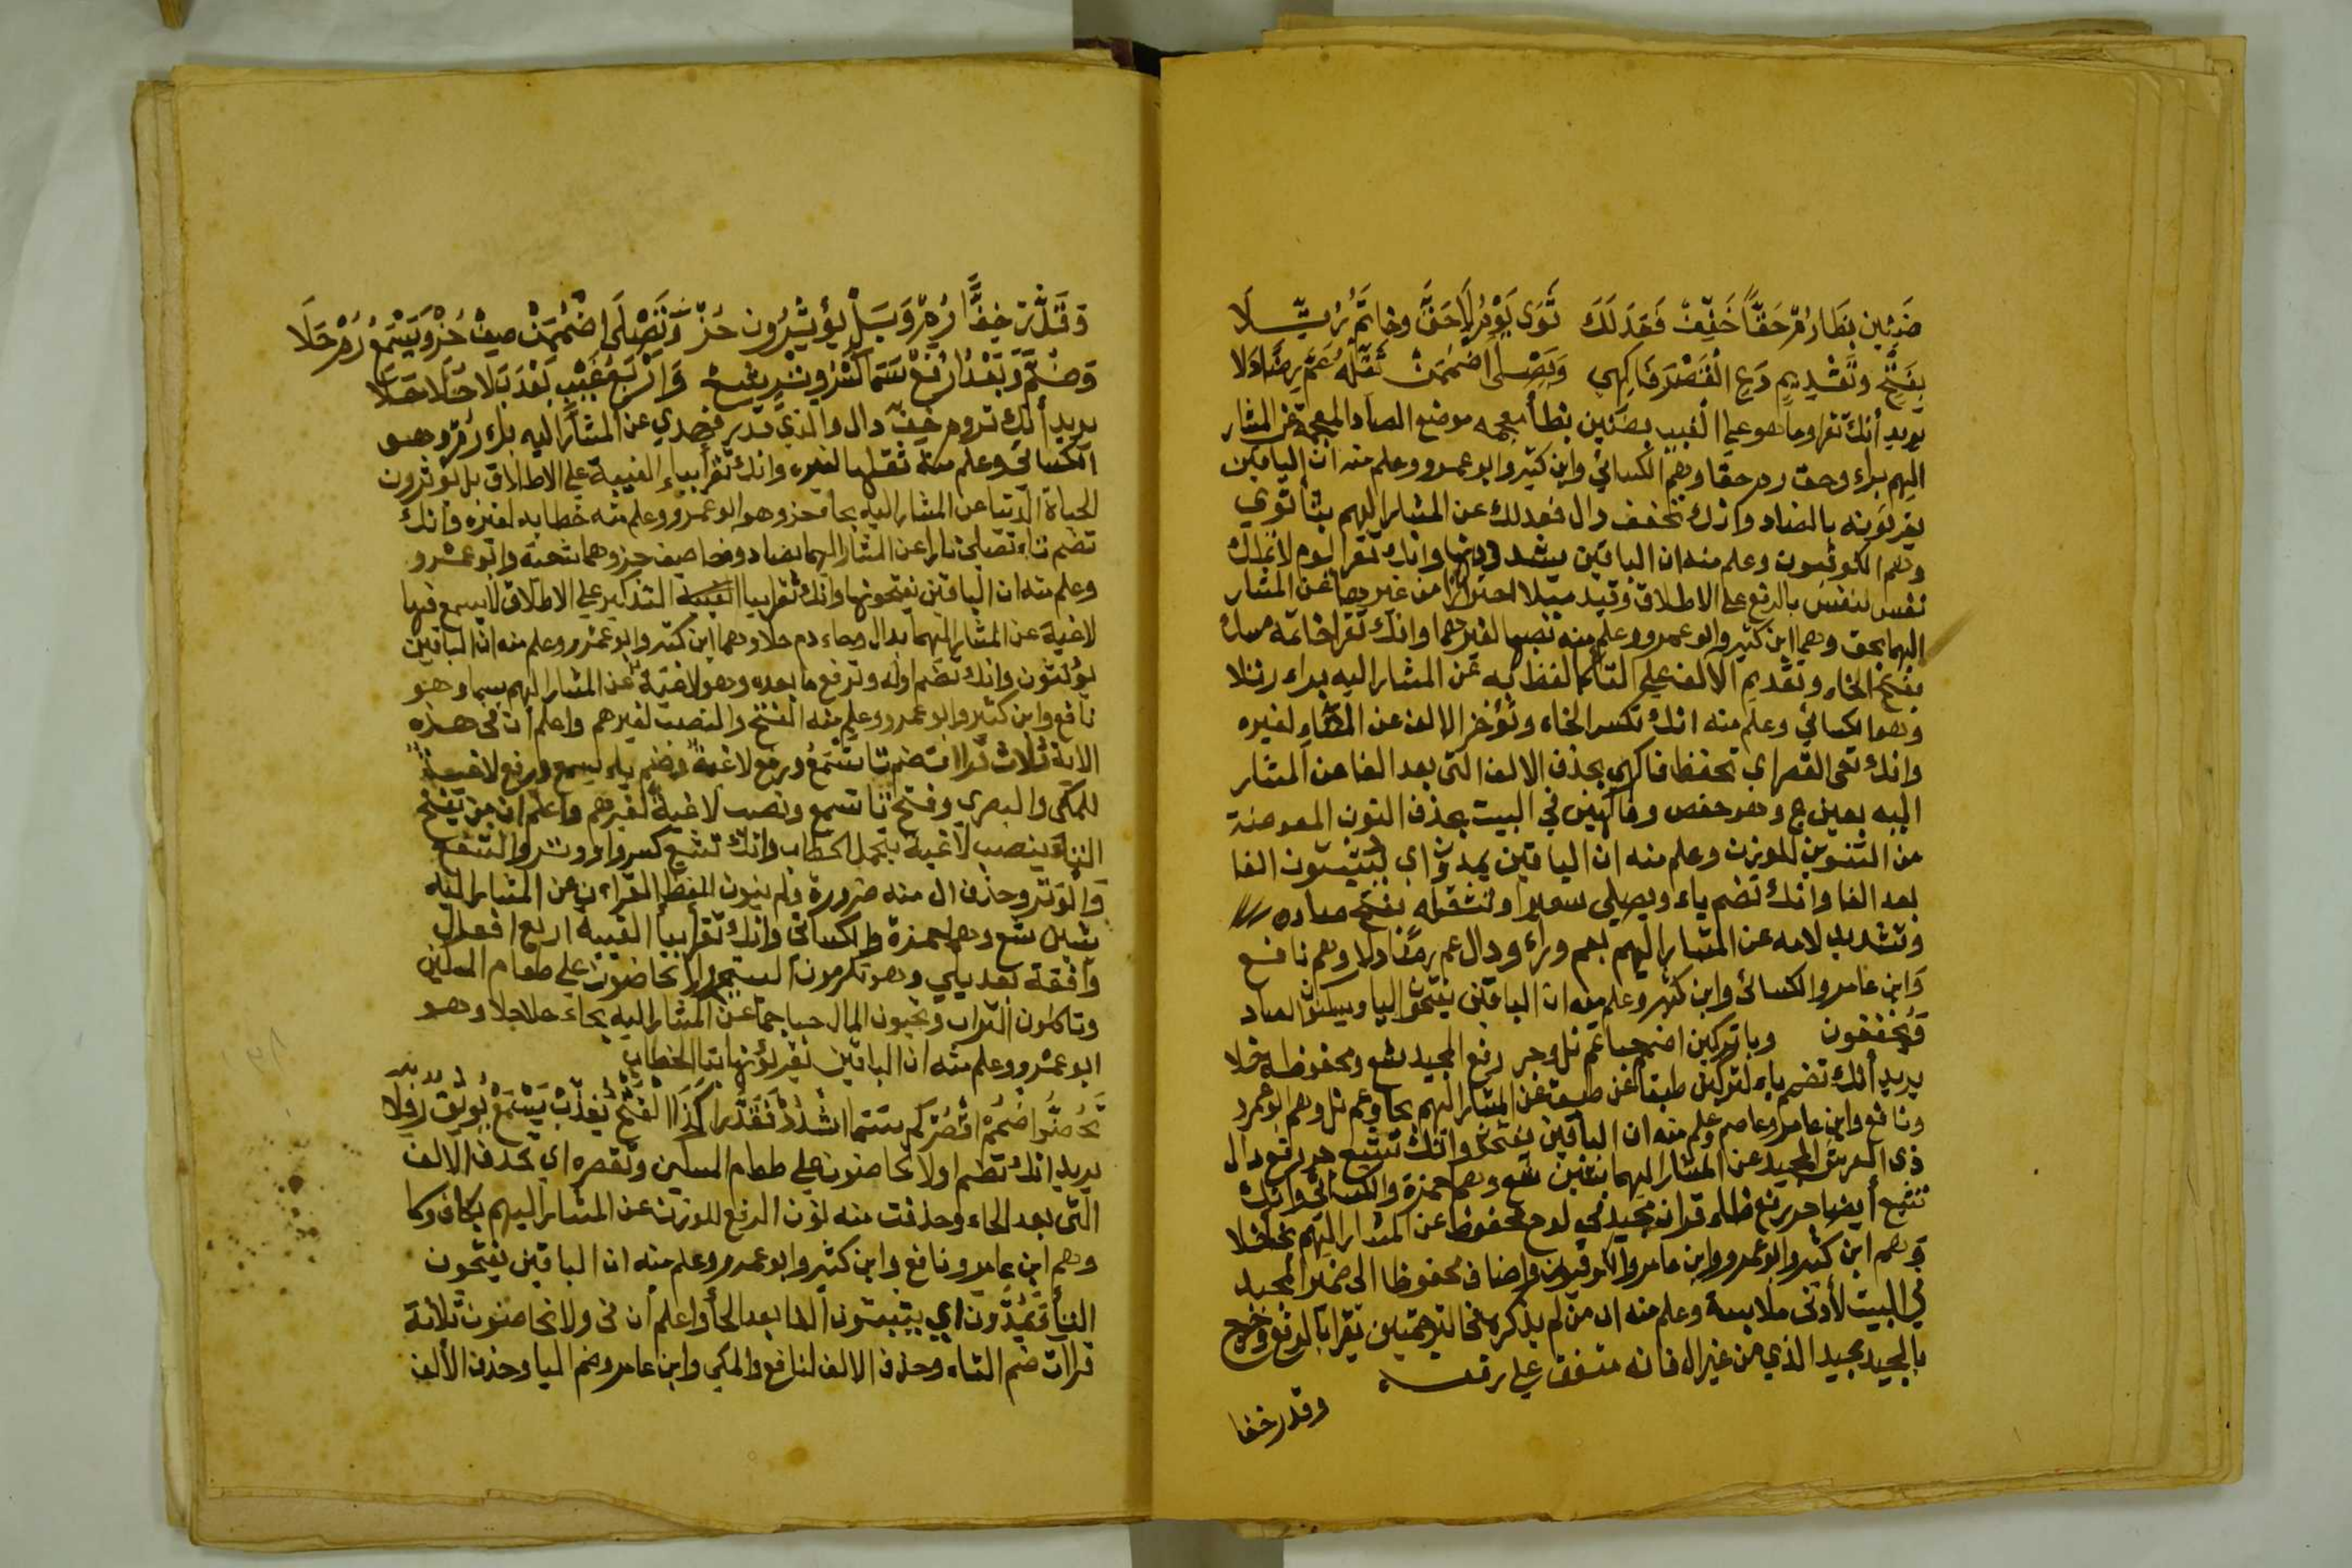 ضَنِينٍ بِظَا رُمْ حَقًّا خَفِّفْ فَعَدَلَكَ ثَوَى يَوْمُ لَا حَقَّ وخاتَمُ رُتِّلَا
بِفَتْحٍ وتَقْدِيمٍ دَعِ القَصْرَ فَاكِهِي وَيَصْلَى اضْمُمَنْ ثَقِّلْهُ عَمَّ رِضًا دَلَا
يريد أنك تقرا وما هو على الغيب بضنين بظا معجمه موضع الضاد المعجمة عن المشار
اليهم براء وحق رم حقا وهم الكسائي وابن كثير وابو عمرو وعلم منه ان الباقين
يقرءونه بالضاد وانك تخفف دال فعدلك عن المشار اليهم بثا ثوي
وهم الكوفيون وعلم منه ان الباقين يشددونها وانك تقرا يوم لا تملك
نفس لنفس بالرفع على الاطلاق وقيد بلا احترازا من غيرها عن المشار
اليهما بحق وهما ابن كثير وابو عمرو وعلم منه نصبها لغيرهما وانك تقرا خاتمه مسك
بفتح الخاء وتقديم الالف على التا كما لفظ به عن المشار اليه براء رتلا
وهو الكسائي وعلم منه انك تكسر الخاء وتؤخر الالف عن التاء لغيره
وانك تحي القصر اي تحفظ فاكهي بحذف الالف التي بعد الفا عن المشار
اليه بعين ع وهو حفص وفاكهين في البيت بحذف النون المعوضة
من التنوين للوزن وعلم منه ان الباقين يمدون اي يثبتون الفا
بعد الفا وانك تضم ياء ويصلي سعيرا وتثقله بفتح صاده
وتشديد لامه عن المشار اليهم بعم وراء ودال عم رضا دلا وهم نافع
وابن عامر والكسائي وابن كثير وعلم منه ان الباقين يفتحون اليا ويسكنون الصاد
ويخففون وبا تركبن اضمم حيا عم نل وجر رفع المجيد شع ومحفوظ خلا
يريد أنك تضم باء لتركبن طبقا عن طبق عن المشار اليهم بحا وعم نل وهم ابو عمرو
ونافع وابن عامر وعاصم وعلم منه ان الباقين يفتحها وانك تتبع جر رفع دال
ذي العرش المجيد عن المشار اليهما بشين شع وهما حمزة والكسائي وانك
تتبع أيضا جر رفع ظاء قران مجيد في لوح محفوظ عن المشار اليهم بخا خلا
وهم ابن كثير وابو عمرو وابن عامر والكوفيون واضاف محفوظا الى ضمير المجيد
في البيت لأدنى ملابسة وعلم منه ان من لم يذكره في الترجمتين يقرا بالرفع وخرج
بالمجيد مجيد الذي من غير ال فانه متفق على رفعه
وقدر خفا
وَقَدَّرَ خِفًّا رُمْ وَبَلْ يُؤْثِرُون حُزْ وَتَصْلَى اضْمُمَنْ صِفْ حُزْ ويَسْمَعُ دُمْ حَلَا
وَضُمَّ وَبَعْدُ ارْفَعْ سَمَا كَسْرُ وِتْرٍ شِعْ وَارْبَعُ غَيْبٍ بَعْدَ بَل لا حَلَا حَلَا
يريد أنك تروم خف دال والذي قدر فهدى عن المشار اليه براء رم وهو
الكسائي وعلم منه ثقلها لغيره وانك تقرأ بياء الغيبة على الاطلاق بل يؤثرون
الحياة الدنيا عن المشار اليه بحا حز وهو ابو عمرو وعلم منه خطابه لغيره وانك
تضم تاء تصلى نارا عن المشار اليهما بصاد وحا صف حز وهما شعبة وابو عمرو
وعلم منه ان الباقين يفتحونها وانك تقرا بيا التذكير على الاطلاق لا يسمع فيها
لاغية عن المشار اليهما بدال وحاء دم حلا وهما ابن كثير وابو عمرو وعلم منه ان الباقين
يؤنثون وانك تضم اوله وترفع ما بعده وهو لاغية عن المشار اليهم بسما وهو
نافع وابن كثير وابو عمرو وعلم منه الفتح والنصب لغيرهم واعلم أن في هذه
الاية ثلاث قراات ضم تا تسمع ورفع لاغية وضم ياء يسمع ورفع لاغية
للمكي والبصري وفتح تا تسمع ونصب لاغية لغيرهم واعلم ان من يفتح
التاء ينصب لاغية بتحمل الخطاب وانك تشع كسر واو وتر والشفع
والوتر وحذف ال منه ضرورة ولم ينون للفظ القراءة عن المشار اليه
بشين شع وهما حمزة والكسائي وانك تقرا بيا الغيبة اربع افعال
وافقة بعد بلى وهو تكرمون اليتيم ولا تحاضون على طعام المسكين
وتاكلون التراث وتحبون المال حبا جما عن المشار اليه بحاء حلا حلا وهو
ابو عمرو وعلم منه ان الباقين يقرؤنها بتا الخطاب
تَحُضُّوا اضْمُمْ اقْصُرْ كم سَمَا اشْدُدْ فَقَدَّرَ كَذَا الْفَتْحُ يُعَذِّبْ يَسْتَمِعْ يُوثِقُ رُفِلَا
يريد انك تضم اولا تحاضون على طعام المسكين وتقصره اي تحذف الالف
التي بعد الحاء وحذفت منه نون الرفع للوزن عن المشار اليهم بكاف وكا
وهم ابن عامر ونافع وابن كثير وابو عمرو وعلم منه ان الباقين يفتحون
التا ويمدون اي يثبتون الفا بعد الحأ واعلم أن في ولا تحاضون ثلاثة
قراات ضم التاء وحذف الالف لنافع والمكي وابن عامر وضم اليا وحذف الألف